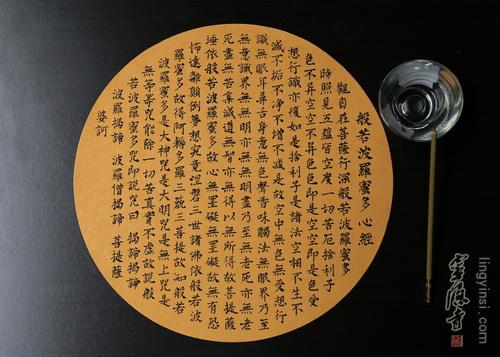 般若波羅蜜多心經
觀自在菩薩行深般若波羅蜜多
時照見五蘊皆空度一切苦厄捨利子
色不异空空不异色色即是空空即是色受
想行識亦復如是捨利子是諸法空相不生不
滅不垢不净不增不減是故空中無色無受想行
識無眼耳鼻舌身意無色聲香味觸法無眼界乃至
無意識界無無明亦無無明盡乃至無老死亦無老
死盡無苦集滅道無智亦無得以無所得故菩提薩
埵依般若波羅蜜多故心無罣礙無罣礙故無有恐
怖遠離顛倒夢想究竟涅槃三世諸佛依般若波
羅蜜多故得阿耨多羅三藐三菩提故知般若
波羅蜜多是大神咒是大明咒是無上咒是
無等等咒能除一切苦真實不虛故說般
若波羅蜜多咒即說咒曰 揭諦揭諦
波羅揭諦 波羅僧揭諦 菩提薩
婆訶
lingyinsi.com
靈隱寺